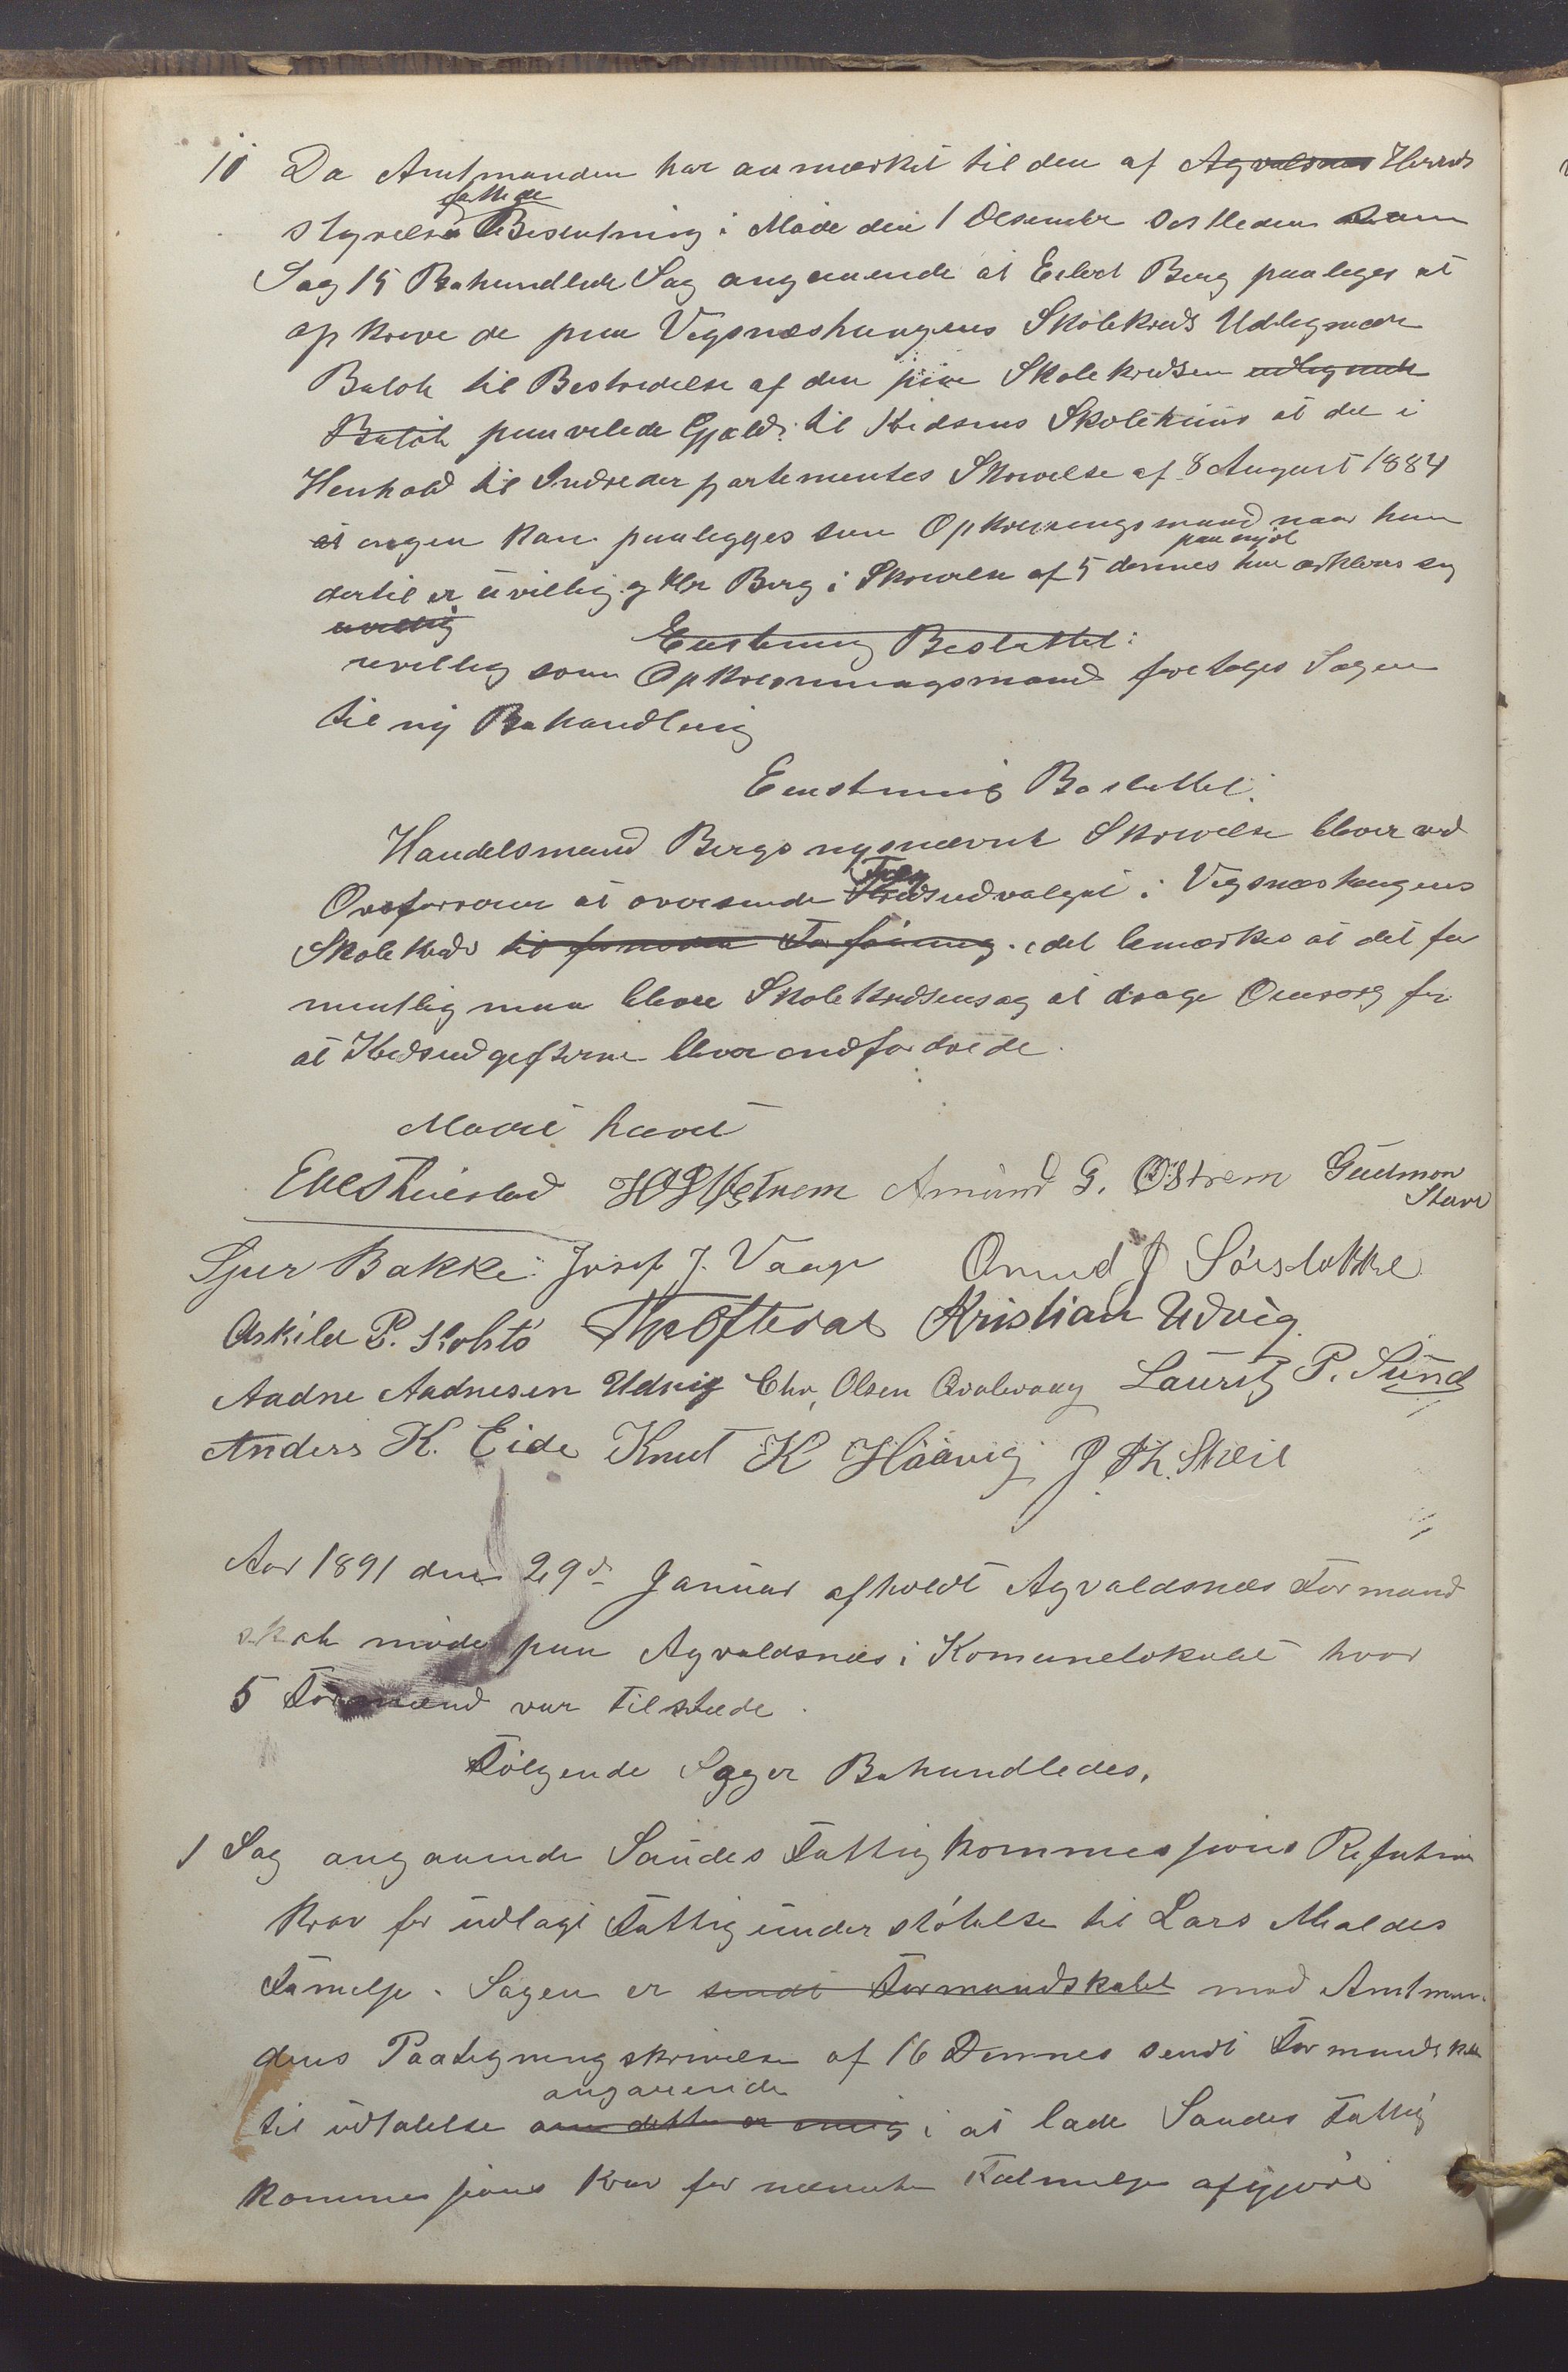 10 Da Amtmanden har anmærket til den af Agvaldsnes Herreds
fattede
styrelse Beslutning i Møde den 1 Desember sidstleden som
Sag 15 Behandlede Sag angaaende at Eilert Berg paaleges at
opkreve de paa Vigsnæshaugens Skolekreds Udlignede
Beløb til Bestridelse af den paa Skolekredsen udlignede
Beløb paavilede Gjæld til Kredsens Skolehuus at der i
Henhold til Indredepartementes Skrivelse af 8 August 1884
at ingen kan paalegges som Opkrevningsmand naar han
paa nyt
dertil er uvillig og Hr Berg i Skrivelse af 5 dennes har erklæret sig
uvillig
Eenstemmig Besluttet:
uvillig som Opkrevningsmand foretages Sagen
til ny Behandling
Eenstemmig Besluttet:
Handelsmand Bergs nysnævnte Skrivelse bliver ved
Tilsyn
Ordføreren at oversende Kredsudvalget i Vigsnæshaugens
Skolekreds til fornøden Forføining. idet bemærkes at det for
mentlig maa blive Skolekredsens sag at drage Omsorg for
at Kredsudgifterne bliver indfordrede.
Mødet hævet
H Østrem Amund G. Østrem Gudmon
Stave
Sjur Bakke. Josef J. Vaage Omund J Sörstokke
Askild P. Kolstö The Oftedal Kristian Udvig.
Aadne Aadnesen Udvig Chr. Olsen Qvalevaag Lauritz P. Sund
Anders K. Eide Knut K Håàvig J Th. Skeie
Aar 1891 den 29de Januar afholdt Agvaldsnæs Formand
skab møde paa Agvaldsnæs i Komunelokalet hvor
5 Formænd var tilstæde.
Følgende Sager Behandledes.
1 Sag angaaende Saudes Fattigkommesjons Refutions
krav for udlagt Fattigunderstøtelse til Lars Mældes
Familje. Sagen er sendt Formandskabet med Amtman
dens Paategning skrivelse af 16 Dennes sendt Formandskab
angaaende
til udtalelse om dette er enig i at lade Saudes Fattig
kommesjons krav for nævnte Familje afgjøre